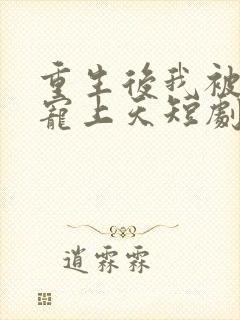 重生後我被
寵上天短劇
逍霖霖